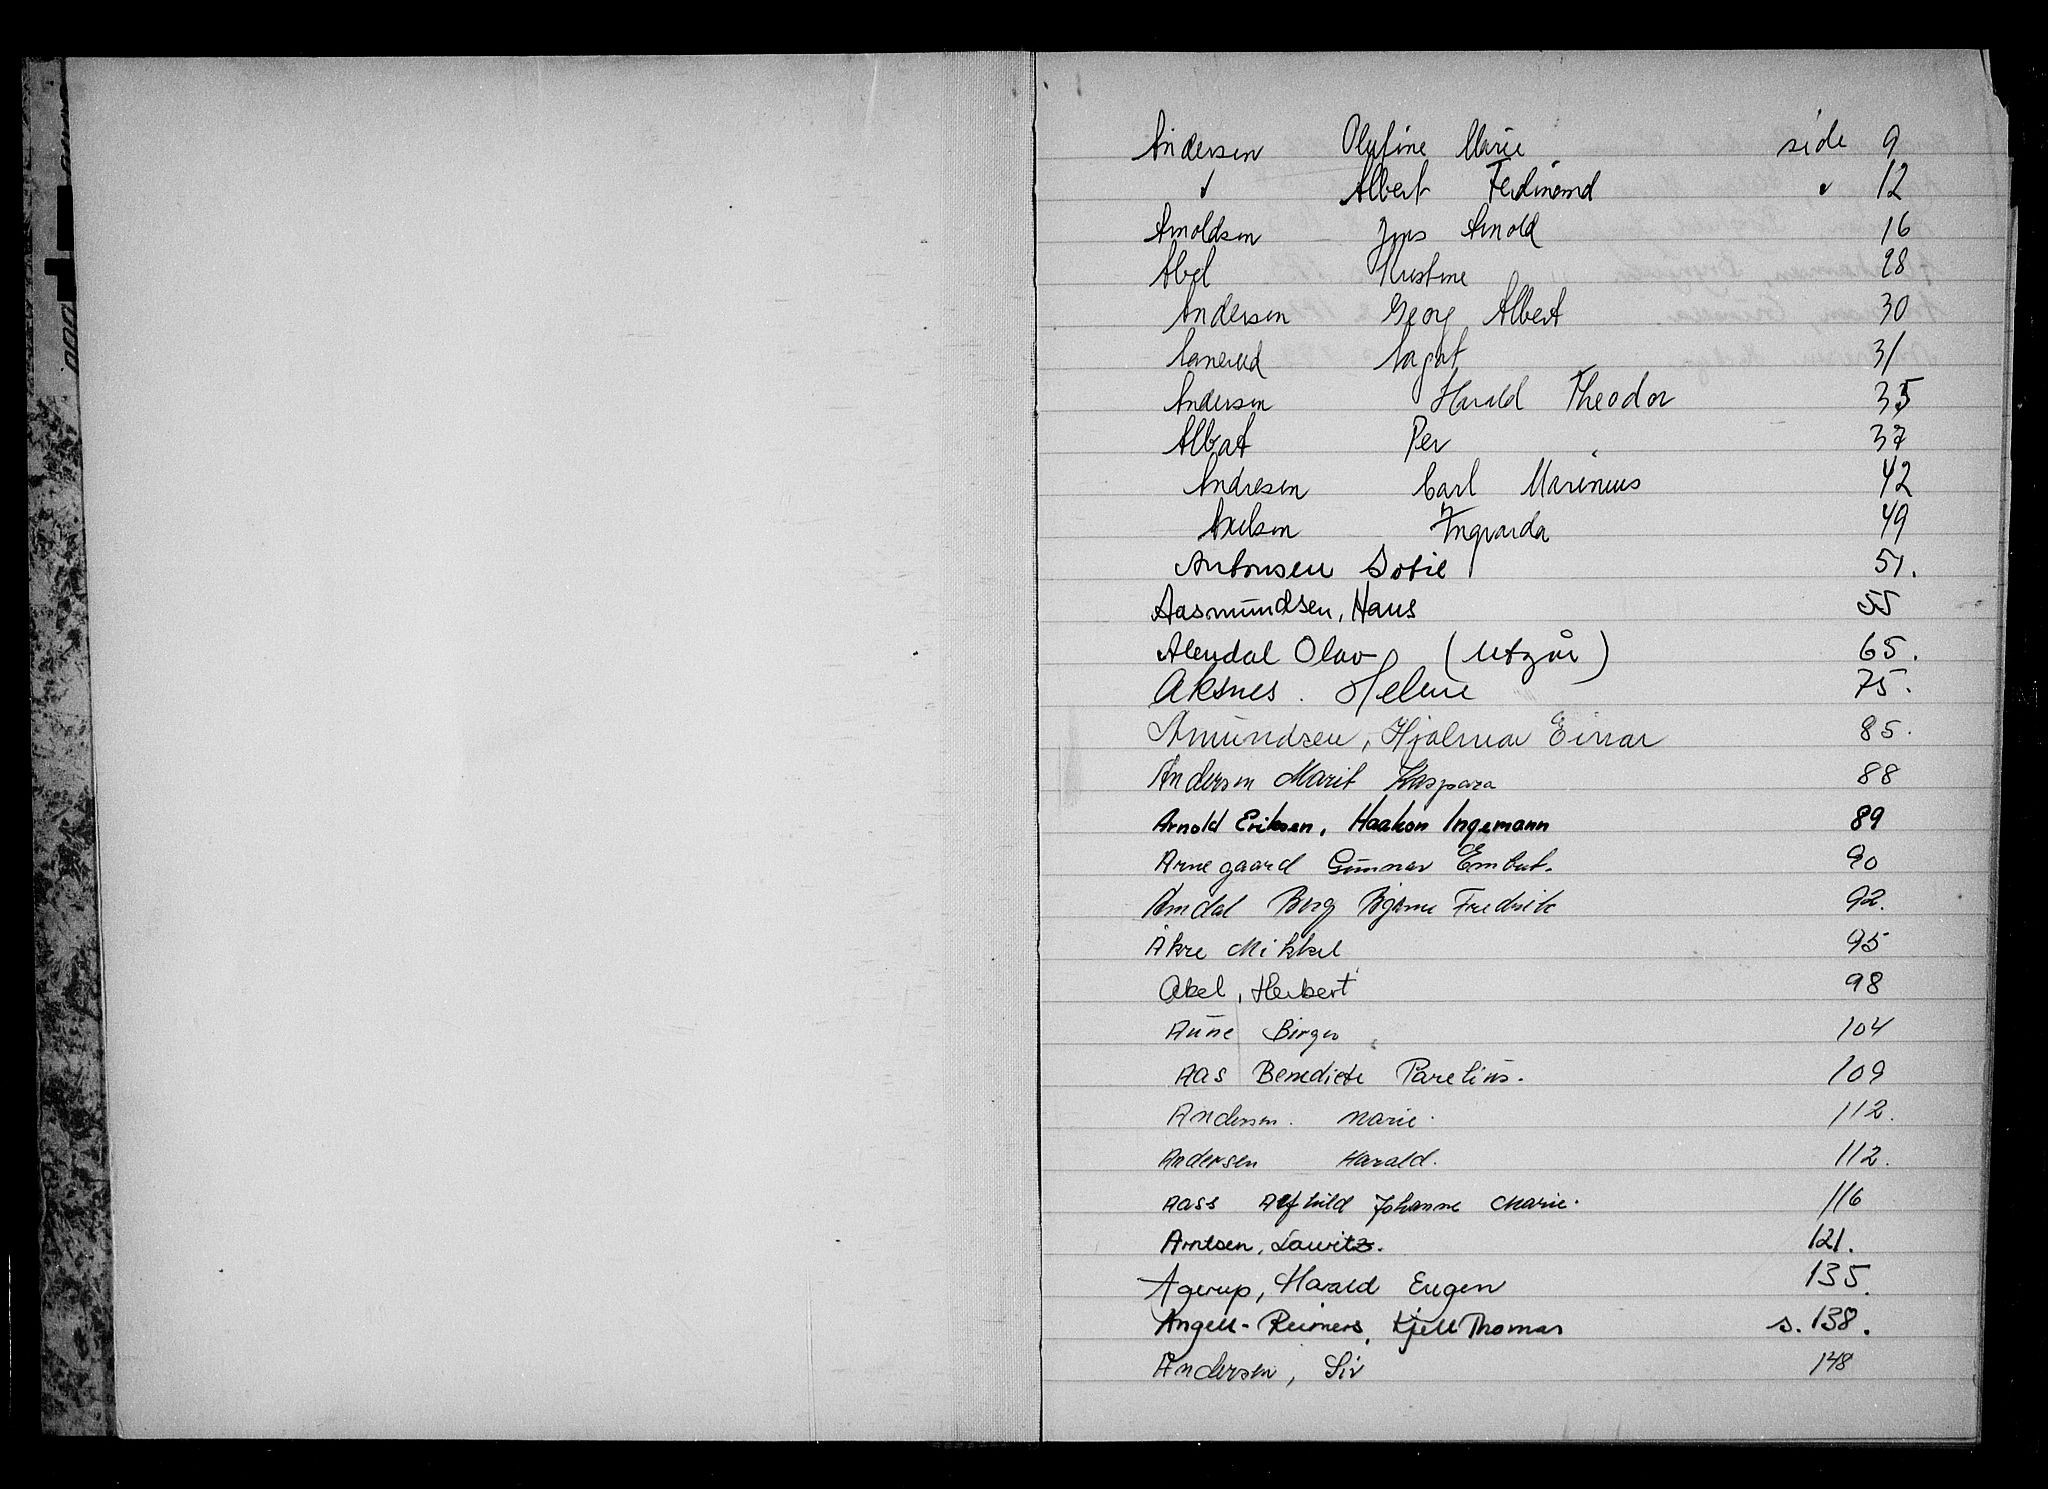 Andersen Olufine Marie side 9
" Albert Ferdinand " 12
Arnoldsen Jens Arnold 16
Abel Kristine 28
Andersen Georg Albert 30
Aanerud Aagot 31
Andersen Harald Theodor 35
Albat Per 37
Andresen Carl Marinius 42
Axelsen Ingvarda 49
Antonsen Sofie 51.
Aasmundsen, Hans 55
Alendal Olav (Utgår) 65.
Aksnes. Helene 75.
Amundsen, Hjalmar Einar 85.
Andersen Marit Kaspara 88
Arnold Eriksen, Haakon Ingemann 89
Arnegaard Gunnar Embret. 90
Amdal Berg Bjarne Fredrik 92.
Åkre Mikkel 95
Abel, Herbert 98
Aune Birger 104
Aas Benedicte Parelius. 109
Andersen. Marie. 112.
Andersen Harald. 112.
Aass Alfhild Johanne Marie. 116
Arntsen, Lauritz. 121.
Agerup, Harald Eugen 135.
Angell-Reimers, Kjell Thomas s. 138.
Andersen, Siv 148